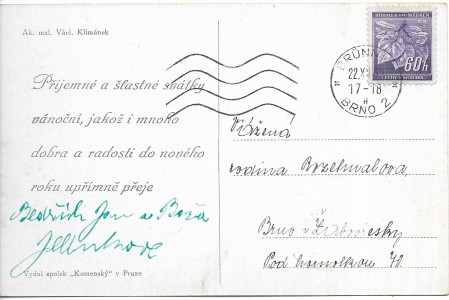 Ak. mal. Václ. Klimánek
Příjemné a šťastné svátky
vánoční, jakož i mnoho
dobra a radosti do nového
roku upřímně přeje
Bedřich Jan a Boža
Vydal spolek „Komenský" v Praze
BÖHMEN UND MÄHREN
60h
ČECHY A MORAVA
BRÜNN 2
22.X
17-18
BRNO 2
Vážená
rodina
Brno
Pod